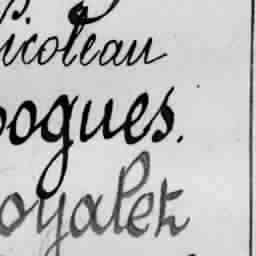 icoleau
ogues.
oyalet